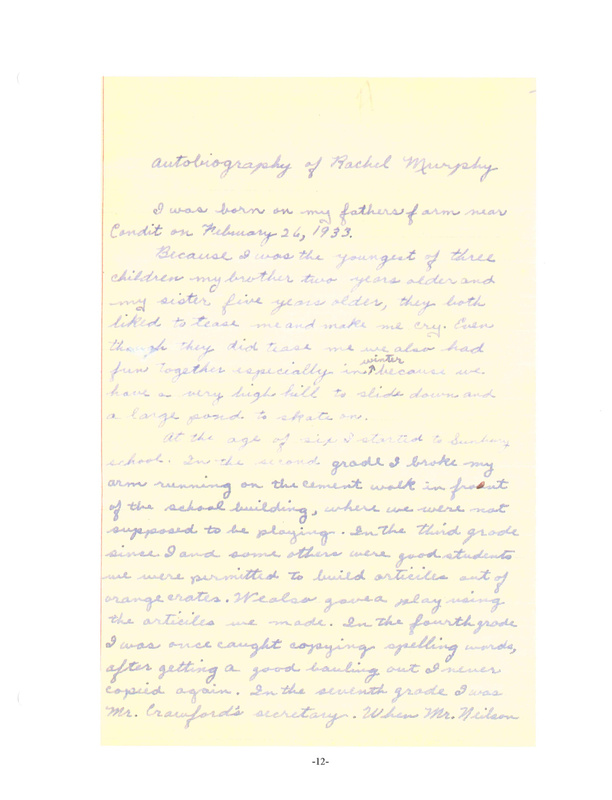 Autobiography of Rachel Murphy
I was born on my fathers farm near
Condit on February 26, 1933.
Because I was the youngest of three
children my brother two years older and
my sister five years older, they both
liked to tease me and make me cry. Even
though they did tease me we also had
fun together especially in winter because we
have a very high hill to slide down and
a large pond to skate on.
At the age of six I started to Sunbury
school. In the second grade I broke my
arm running on the cement walk in front
of the school building, where we were not
supposed to be playing. In the third grade
since I and some others were good students
we were permitted to build articiles out of
orange crates. We also gave a play using
the articiles we made. In the fourth grade
I was once caught copying spelling words,
after getting a good bauling out I never
copied again. In the seventh grade I was
Mr. Crawford's secretary. When Mr. Neilson
-12-